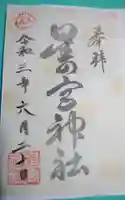 奉拝
宮神社
令和三年六月二十日